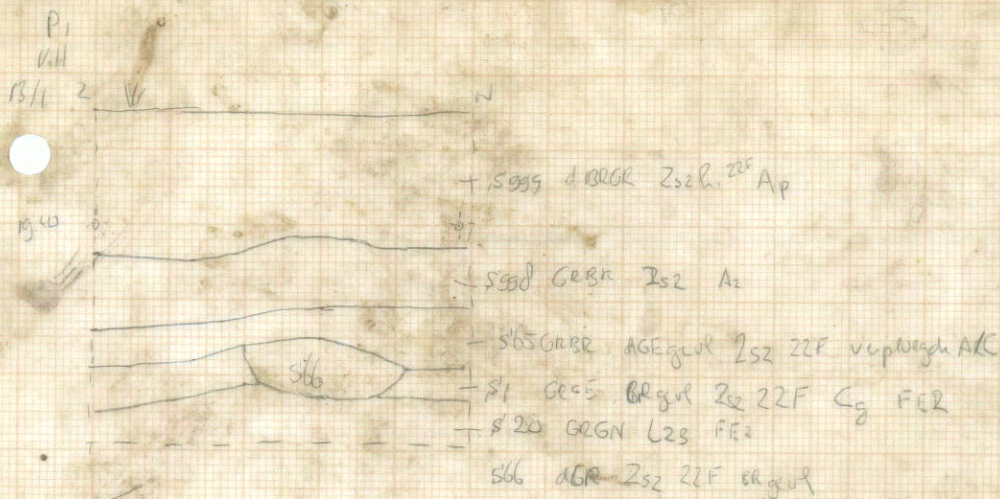 P1
V.11
13/1 Z N
S999 dBRGR Zs2h, 22F Ap
19.40 0 6
S998 GRBR Zs2 A2
S65 GRBR dGEgevl Zs2 22F
S66
S1 GRGE BRgevl Zs2 22F Cg FE2
S20 GRGN Lz3 FE2
S66 dGR Zs2 22F BRgevl